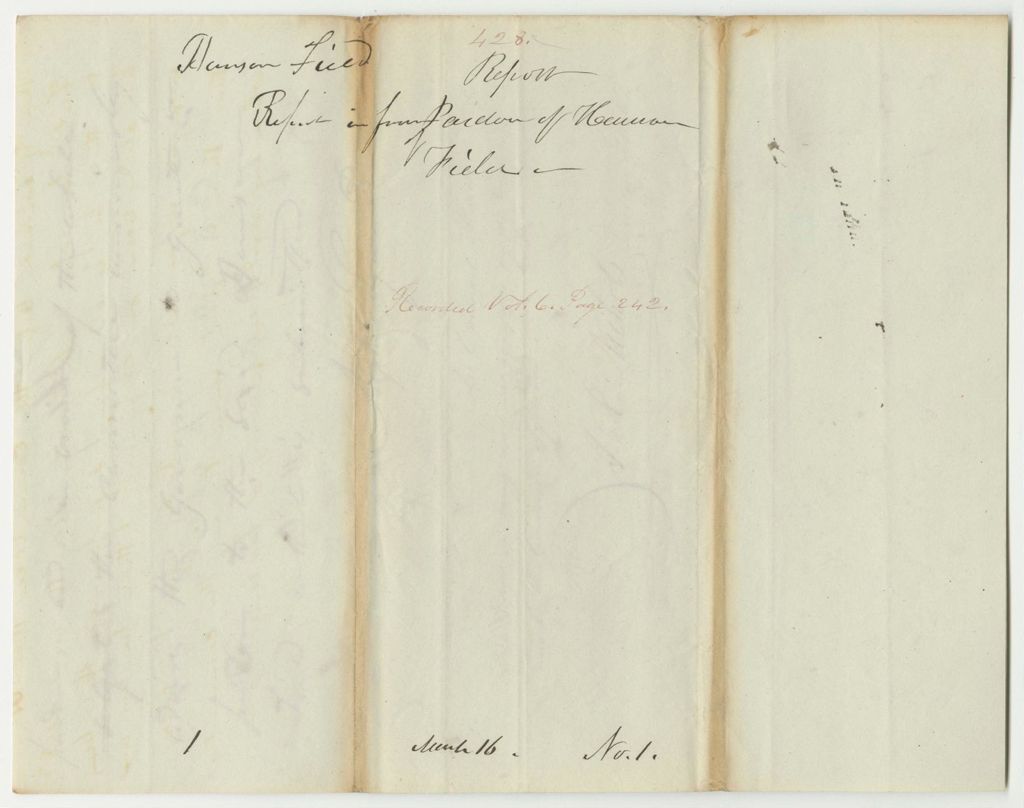 428.
Hanson Field
Report
Report in favour Pardon of Hanson
Field
Recorded Vol. 6. Page 242.
1
March 16.
No. 1.